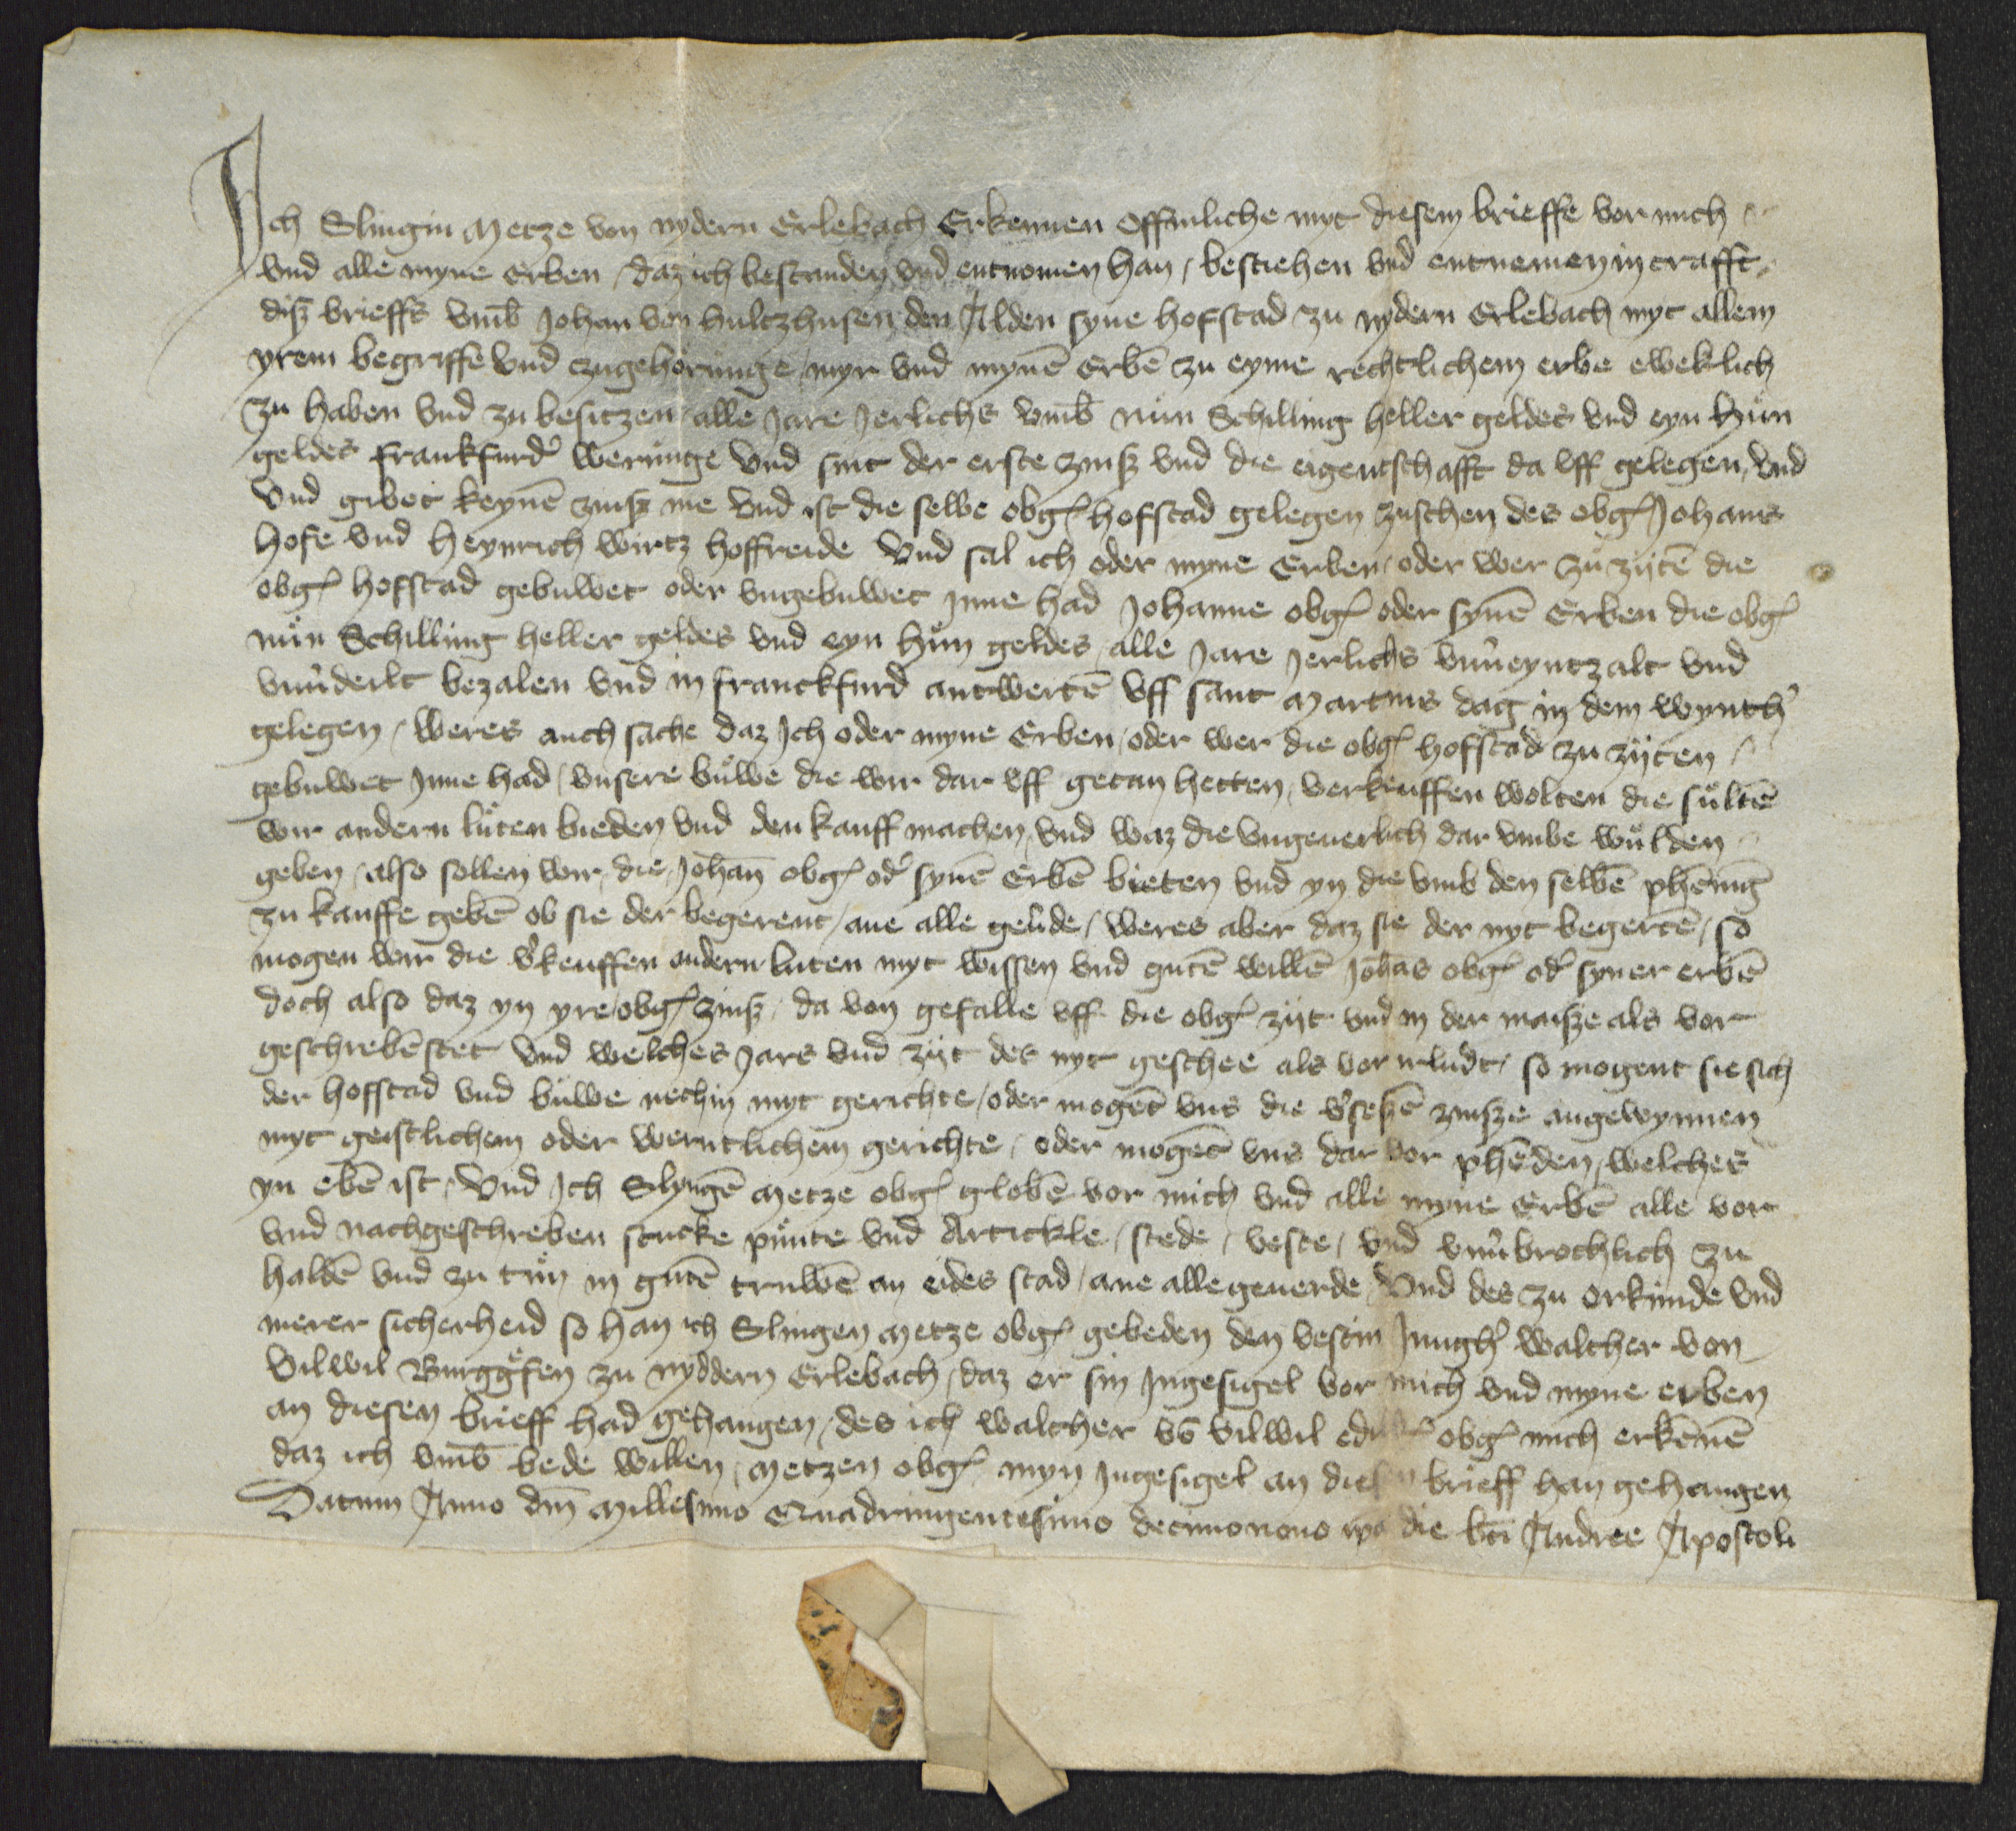 Ich Slingin Metze von nydern Erlebach Erkennen Offinliche myt diesem brieffe vor mich
vnd alle myne Erben / daz ich bestanden vnd entnomen han / bestehen vnd entnemen in crafft
disz brieffs vmb Johan von hultzhusen den Alden syne hofstad zu nydern Erlebach myt allem
yrem begriffe vnd zugehorunge / myr vnd mynē Erbē zu eyme rechtlichem erbe eweklich
zu haben vnd zu besitzen / alle Jare Jerlichs vmb nůn Schilling heller geldes vnd eyn hůn
geldes franckfurd' werunge vnd sint der erste zinsz vnd die eigentschafft da vff gelegen / vnd
vnd gibet keynē zinsz me vnd ist die selbe obg' hofstad gelegen zuschen des obg' Johans
hofe vnd heynrich wirtz hoffreide vnd sal ich oder myne Erben / oder wer zu zijtē die
obg' hofstad gebuwet oder vngebuwet Inne had Johanne obg' oder synē Erben die obg'
nůn Schilling heller geldes vnd eyn hůn geldes / alle Jare Jerlichs vnu'eyntzalt vnd
vnu'deilt bezalen vnd in franckfurd antwertē vff sant Martins dag in dem wynth'
gelegen / weres auch sache daz Ich oder myne Erben / oder wer die obg' hofstad zu zijten
gebuwet Inne had / vnsere bůwe die wir dar vff getan hetten / verkeuffen wolten die sůltē
wir andern lůten bieden vnd den kauff machen / vnd waz die vngeuerlich dar vmbe wůlden
geben / also sollen wir / die / Johan obg' od' synē Erbē bieten vnd yn die vmb den selbē phēnig
zu kauffe gebē ob sie der begerent / ane alle geu'de / weres aber daz sie der nyt begertē / so
mogen wir die v'keuffen andern luten myt wissen vnd gutē willē Johās obg' od' syner erbē
doch also daz yn yre obg' zinsz / da von gefalle vff die obg' zijt vnd in der maisze als vor
geschrebē stet vnd welches Jars vnd zijt des nyt geschee als vor irludt / so mogent sie sich
der hofstad vnd bůwe nechin myt gerichte / oder mogēt vns die v'seszē zinsze angewynnen
myt geistlichem oder werntlichem gerichte / oder mogēt vns dar vor phēden / welches
yn ebē ist / vnd Ich Slyngē Metze obg' globē vor mich vnd alle myne Erbē alle vor
vnd nachgeschreben stucke půnte vnd Artickle / stede / veste / vnd vnu'brochlich zu
haldē vnd zu tůn in gutē truwē an eides stad / ane alle geuerde / Vnd des zu orkunde vnd
merer sicherheid so han ich Slingen Metze obg' gebeden den vestin Jungh' walther von
vilwil Burggfen zu nyddern Erlebach / daz er sin Ingesigel vor mich vnd myne erben
an diesen brieff had gehangen / des ich walther vō vilwil obg' mich erkēnē
daz ich vmb bede willen / Metzen obg' myn Ingesigel an diesen brieff han gehangen
Datum Anno dm Millesimo Quadringentesimo decimonono ipo die bti Andree Apostoli